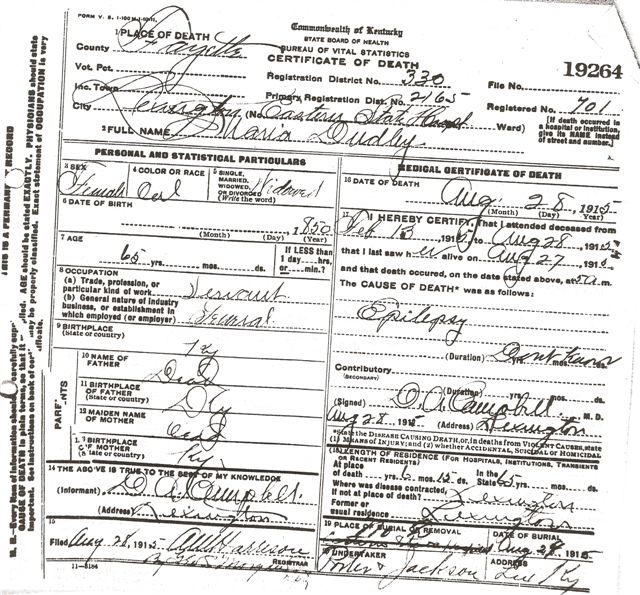 FORM V. S. 1-100
Commonwealth of Kentucky
STATE BOARD OF HEALTH
BUREAU OF VITAL STATISTICS
CERTIFICATE OF DEATH
1 PLACE OF DEATH
County Fayette
Vot. Pct.
Inc. Town
City Lexington (No. Eastern State Ward)
Registration District No. 330
Primary Registration Dist. No. 2165
File No. 19264
Registered No. 701
[If death occurred in a hospital or institution, give its NAME instead of street and number.]
2 FULL NAME Maria Dudley
PERSONAL AND STATISTICAL PARTICULARS
3 SEX Female
4 COLOR OR RACE Col
5 SINGLE, MARRIED, WIDOWED, OR DIVORCED (Write the word) Widowed
6 DATE OF BIRTH
, 1850
(Month) (Day) (Year)
7 AGE
65 yrs. mos. ds.
If LESS than 1 day, hrs. or min.?
8 OCCUPATION
(a) Trade, profession, or particular kind of work Servant
(b) General nature of industry business, or establishment in which employed (or employer) General
9 BIRTHPLACE (State or country) Ky
PARENTS
10 NAME OF FATHER Dead
11 BIRTHPLACE OF FATHER (State or country) Ky
12 MAIDEN NAME OF MOTHER Dead
13 BIRTHPLACE OF MOTHER (State or country) Ky
14 THE ABOVE IS TRUE TO THE BEST OF MY KNOWLEDGE
(Informant) O. A. Campbell
(Address) Lexington
15
Filed Aug 28, 1915 REGISTRAR
11-3184
MEDICAL CERTIFICATE OF DEATH
16 DATE OF DEATH Aug 28, 1915
(Month) (Day) (Year)
17 I HEREBY CERTIFY, That I attended deceased from
Feb 13, to Aug 28, 1915,
that I last saw her alive on Aug 27, 1915,
and that death occured, on the date stated above, at m.
The CAUSE OF DEATH* was as follows:
Epilepsy
(Duration) Dont know
Contributory (SECONDARY)
(Duration) yrs. mos. ds.
(Signed) O. A. Campbell, M. D.
Aug 28, 1915 (Address) Lexington
*State the DISEASE CAUSING DEATH, or, in deaths from VIOLENT CAUSES, state (1) MEANS OF INJURY; and (2) whether ACCIDENTAL, SUICIDAL or HOMICIDAL
18 LENGTH OF RESIDENCE (FOR HOSPITALS, INSTITUTIONS, TRANSIENTS OR RECENT RESIDENTS)
At place of death yrs. 6 mos. 15 ds. In the State yrs. mos. ds.
Where was disease contracted, If not at place of death? Lexington
Former or usual residence Lexington
19 PLACE OF BURIAL OR REMOVAL
DATE OF BURIAL Aug 28, 1915
20 UNDERTAKER Porter & Jackson
ADDRESS Lex Ky